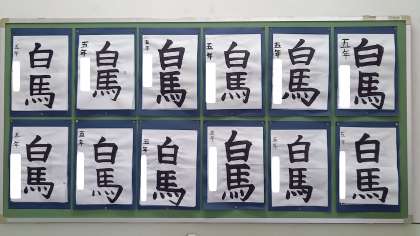 白馬
五年
白馬
五年
白馬
五年
白馬
五年
白馬
五年
白馬
五年
白馬
五年
白馬
五年
白馬
五年
白馬
五年
白馬
五年
白馬
五年